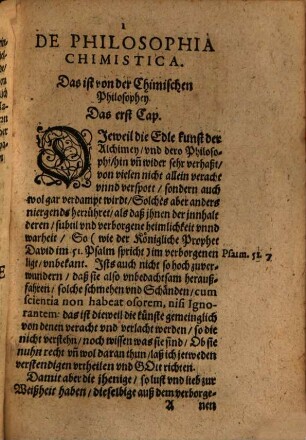 1
DE PHILOSOPHIA
CHIMISTICA.
Das ist von der Chimischen
Philosophey.
Das erst Cap.
DIeweil die Edle kunst der
Alchimey / vnd dero Philoso-
phi / hin vñ wider sehr verhaßt /
von vielen nicht allein veracht
vnnd verspott / sondern auch
wol gar verdampt wirdt / Solches aber anders
niergends herrühret / als daß jhnen der innhalt
deren / subtil vnd verborgene heimlichkeit vnnd
warheit / So (wie der Königliche Prophet
David im 51. Psalm spricht) im verborgenen
ligt / vnbekant. Ists auch nicht so hoch zuver-
wundern / daß sie also vnbedachtsam herauß-
fahren / solche schmehen vnd Schänden / cum
scientia non habeat osorem, nisi Igno-
rantem: das ist dieweil die künste gemeinglich
von denen veracht vnd verlacht werden / so die
nicht verstehn / noch wissen was sie sind / Ob sie
nuhn recht vñ wol daran thun / laß ich jetweden
verstendigen vrtheilen vnd GOtt richten.
Damit aber die jhenige / so lust vnd lieb zur
Weißheit haben / dieselbige auß dem verborge-
A nen
Psam. 51. 7